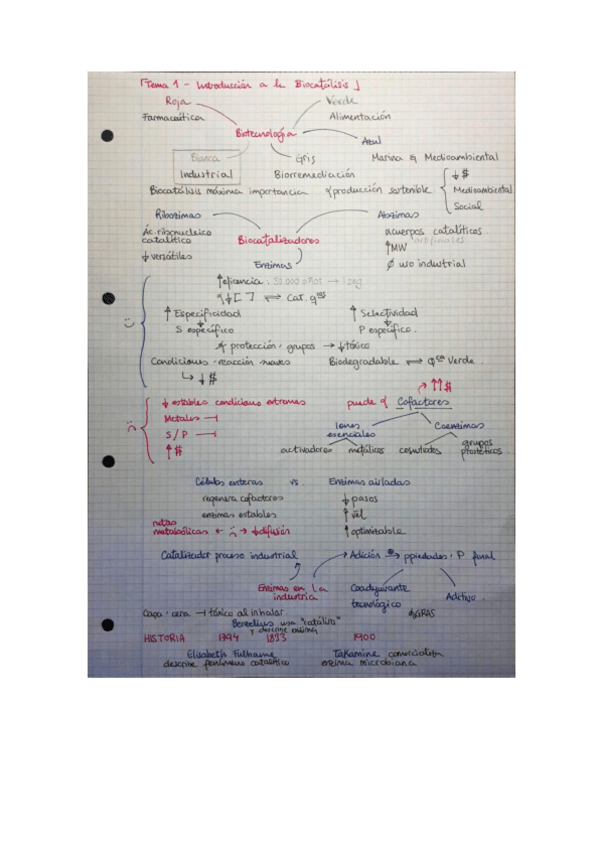 「Tema 1 - Introducción a la Biocatálisis」
Roja Verde
Farmaceútica Alimentación
Biotecnología
Azul
Blanca Gris Marina & Medioambiental
Industrial Biorremediación ↓ $
Biocatálisis máxima importancia producción sostenible Medioambiental
Social
Ribozimas Abzimas
Ác. ribonucleico acuerpos catalíticos
catalítico Biocatalizadores artificiales
↑MW
↓ versátiles Enzimas ∅ uso industrial
↑ eficiencia → 1 seg
↓[ ] ⇌ Cat. qcos
↑ Especificidad ↑ Selectividad
S específico P específico.
≠ protección. grupos → ↓ tóxico
Condiciones. reacción suaves Biodegradable ⇌ Qca Verde.
↳ ↓ $
↑↑$
↓ estables condiciones extremas puede Cofactores
Metales ⊣ Iones Coenzimas
S / P ⊣ esenciales
↑ $ activadores metálicos cosustratos grupos
prostéticos.
Células enteras vs. Enzimas aisladas
regenera cofactores ↓ pasos
enzimas estables ↑ vel
rutas
metabólicas ← :( → ↓ difusión ↑ optimizable
Catalizador proceso industrial Adición ⇒ ppiedades. P final
Enzimas en la Coadyuvante
industria tecnológico Aditivo.
Capa. cera → tóxico al inhalar. GRAS
Berzelius usa "catálisis"
y describe enzimas
HISTORIA 1794 1833 1900
Elisabeth Fulhame Takamine comercializa
describe fenómeno catalítico enzima microbiana